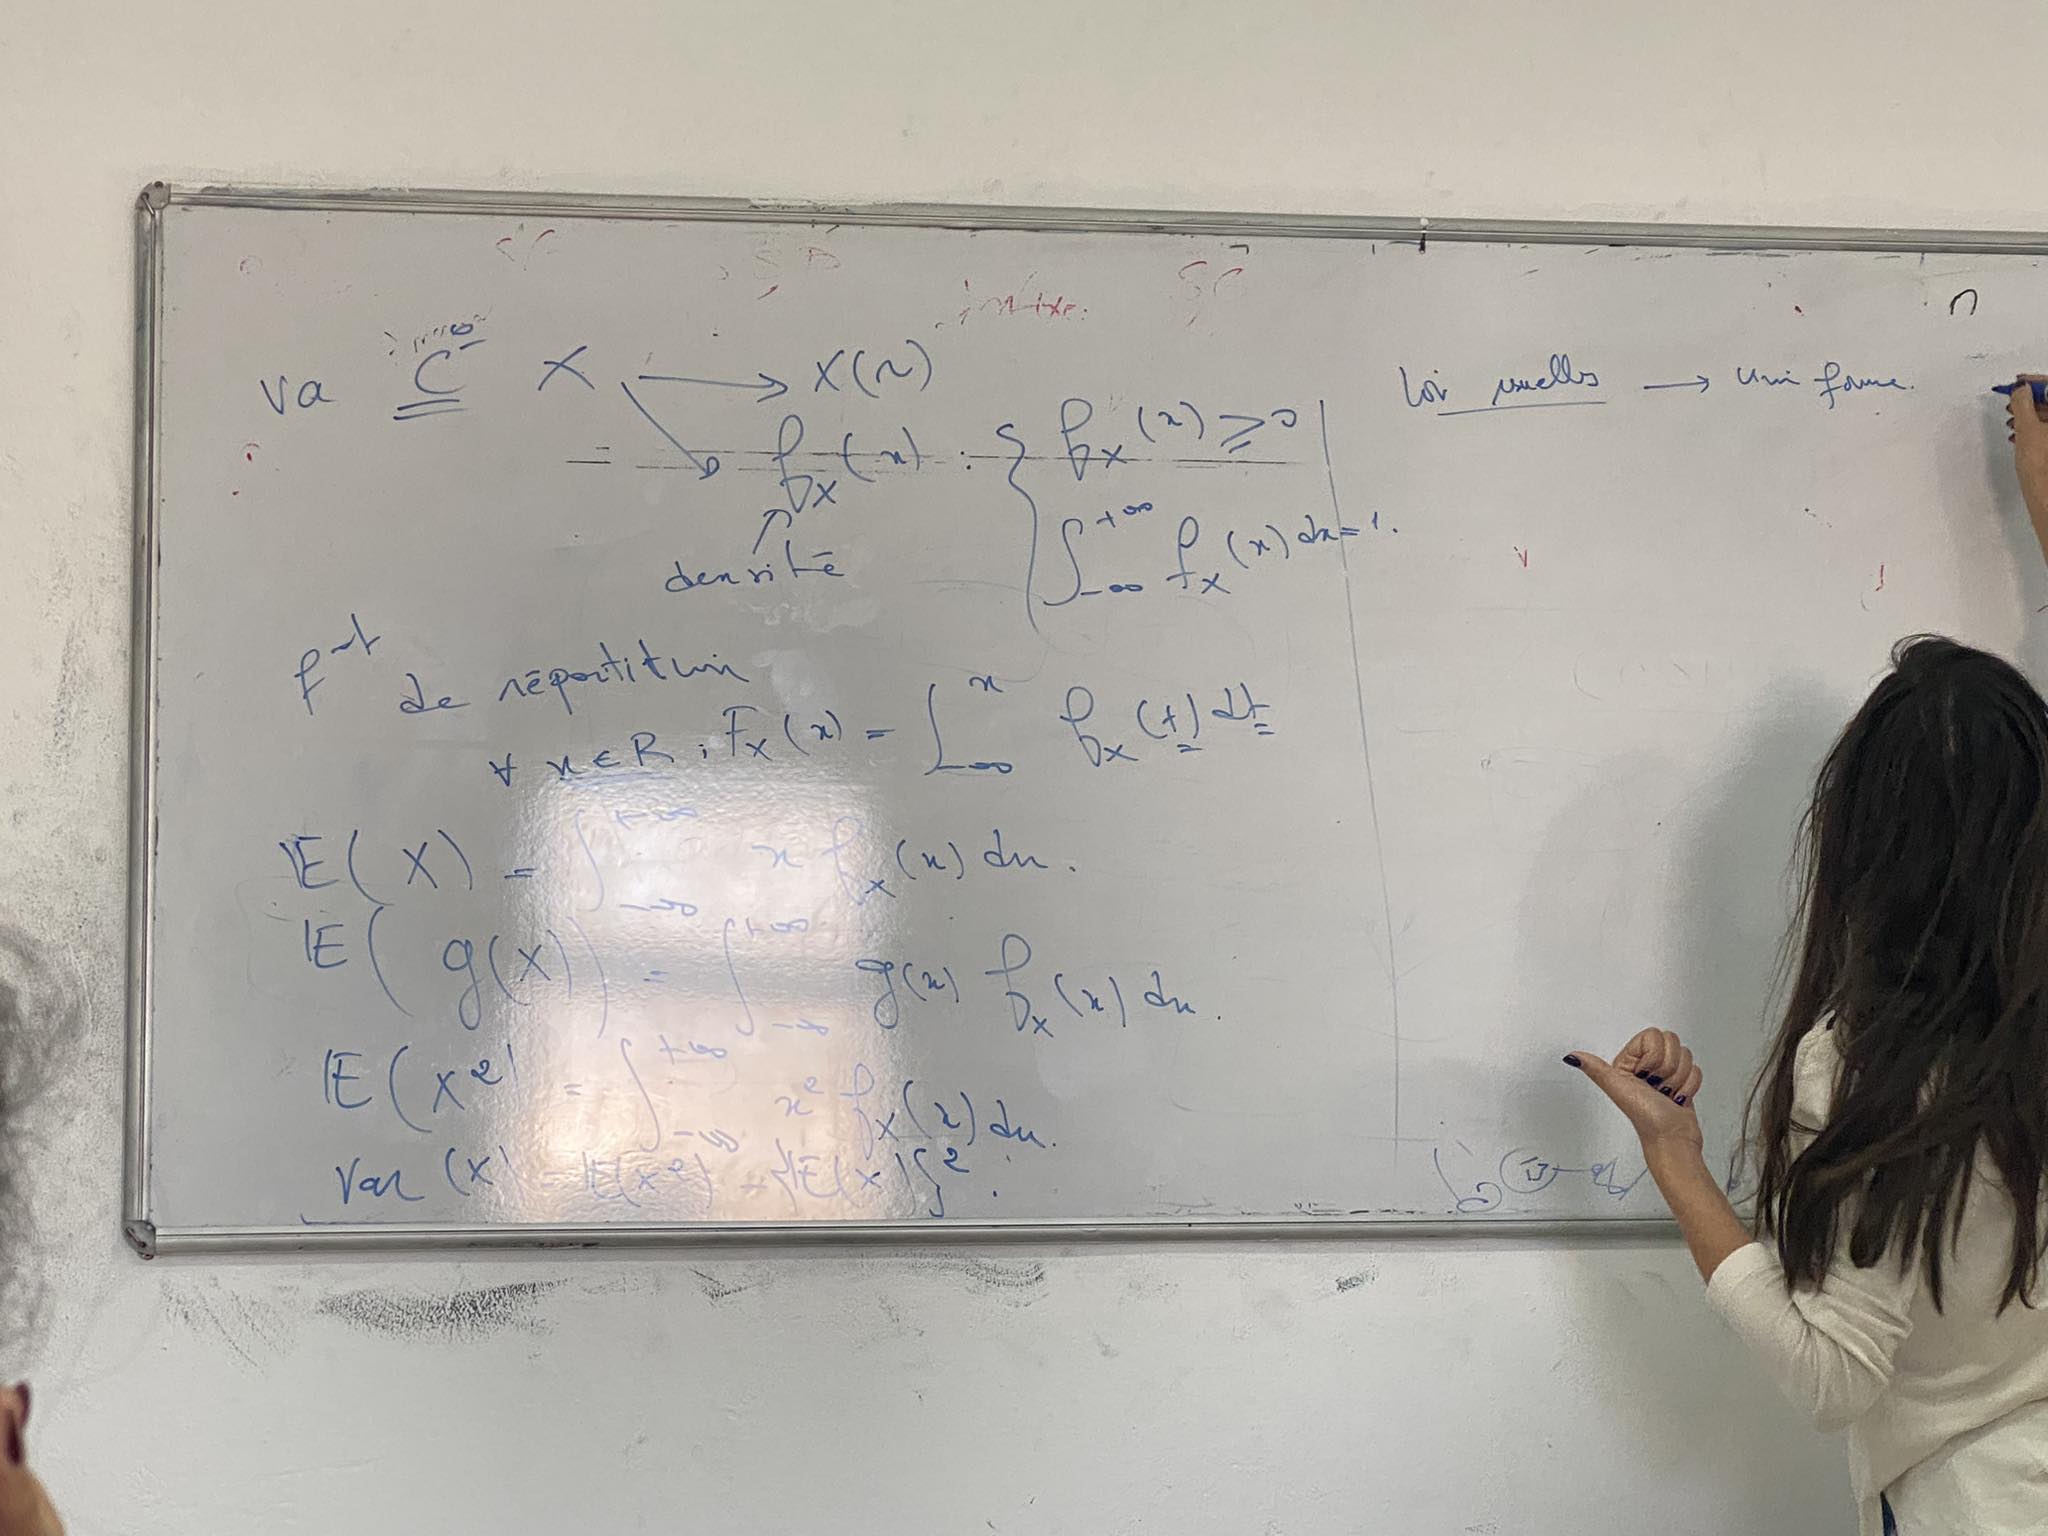 va C X → X(Ω)
f_X(x) : { f_X(x) ≥ 0
densité
∫_{-∞}^{+∞} f_X(x) dx = 1.
f^{nt} de répartition
∀ x ∈ R, F_X(x) = ∫_{-∞}^{x} f_X(t) dt
E(X) = ∫_{-∞}^{+∞} x f_X(x) dx.
E(g(X)) = ∫_{-∞}^{+∞} g(x) f_X(x) dx.
E(X²) = ∫_{-∞}^{+∞} x² f_X(x) dx.
Var(X) = E(X²) - {E(X)}².
loi usuelles → uniforme.